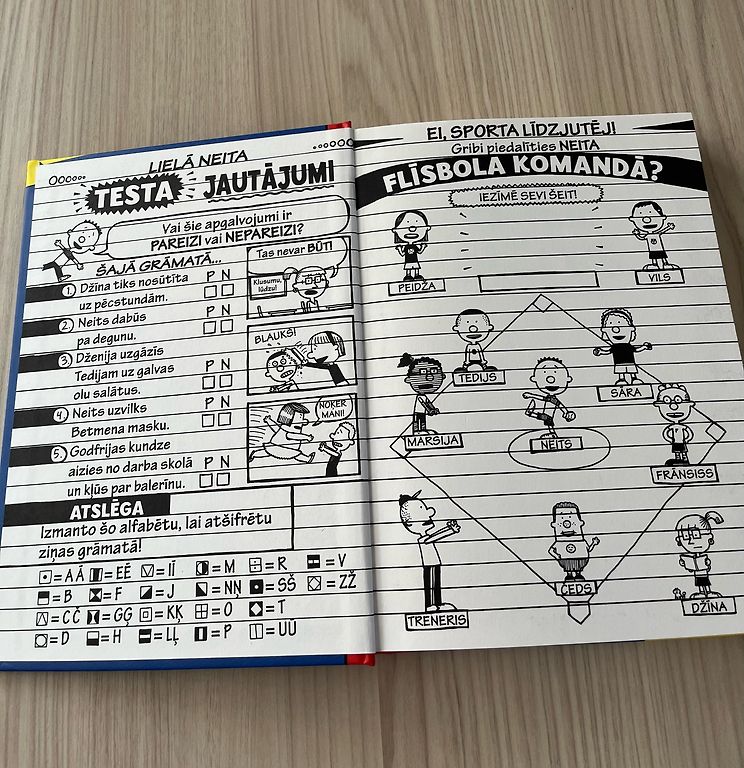 LIELĀ NEITA
TESTA JAUTĀJUMI
Vai šie apgalvojumi ir
PAREIZI vai NEPAREIZI?
ŠAJĀ GRĀMATĀ...
1. Džīna tiks nosūtīta P N
uz pēcstundām.
2. Neits dabūs P N
pa degunu.
3. Dženija uzgāzīs P N
Tedijam uz galvas
olu salātus.
4. Neits uzvilks P N
Betmena masku.
5. Godfrijas kundze
aizies no darba skolā P N
un kļūs par balerīnu.
Tas nevar BŪT!
Klusumu,
lūdzu!
BLAUKŠ!
NOĶER
MANI!
ATSLĒGA
Izmanto šo alfabētu, lai atšifrētu
ziņas grāmatā!
=AĀ =EĒ =IĪ =M =R =V
=B =F =J =NŅ =SŠ =ZŽ
=CČ =GĢ =KĶ =O =T
=D =H =LĻ =P =UŪ
EI, SPORTA LĪDZJUTĒJ!
Gribi piedalīties NEITA
FLĪSBOLA KOMANDĀ?
IEZĪMĒ SEVI ŠEIT!
PEIDŽA
VILS
TEDIJS
SĀRA
MARSIJA
NEITS
FRĀNSISS
TRENERIS
ČEDS
DŽĪNA